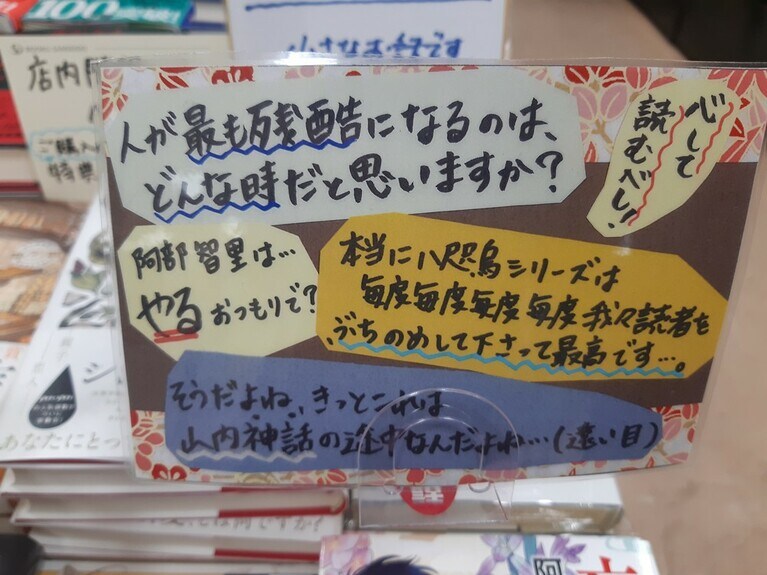 100
店内
ご購入
特典
小さなお話です
人が最も残酷になるのは、
どんな時だと思いますか?
心して
読むべし!
阿部智里は…
やるおつもりで?
本当に八咫烏シリーズは
毎度毎度毎度毎度我々読者を
ぶちのめして下さって最高です…。
そうだよね、きっとこれは
山内神話の途中なんだよね…(遠い目)
あなたにとっ
は何ですか?
阿